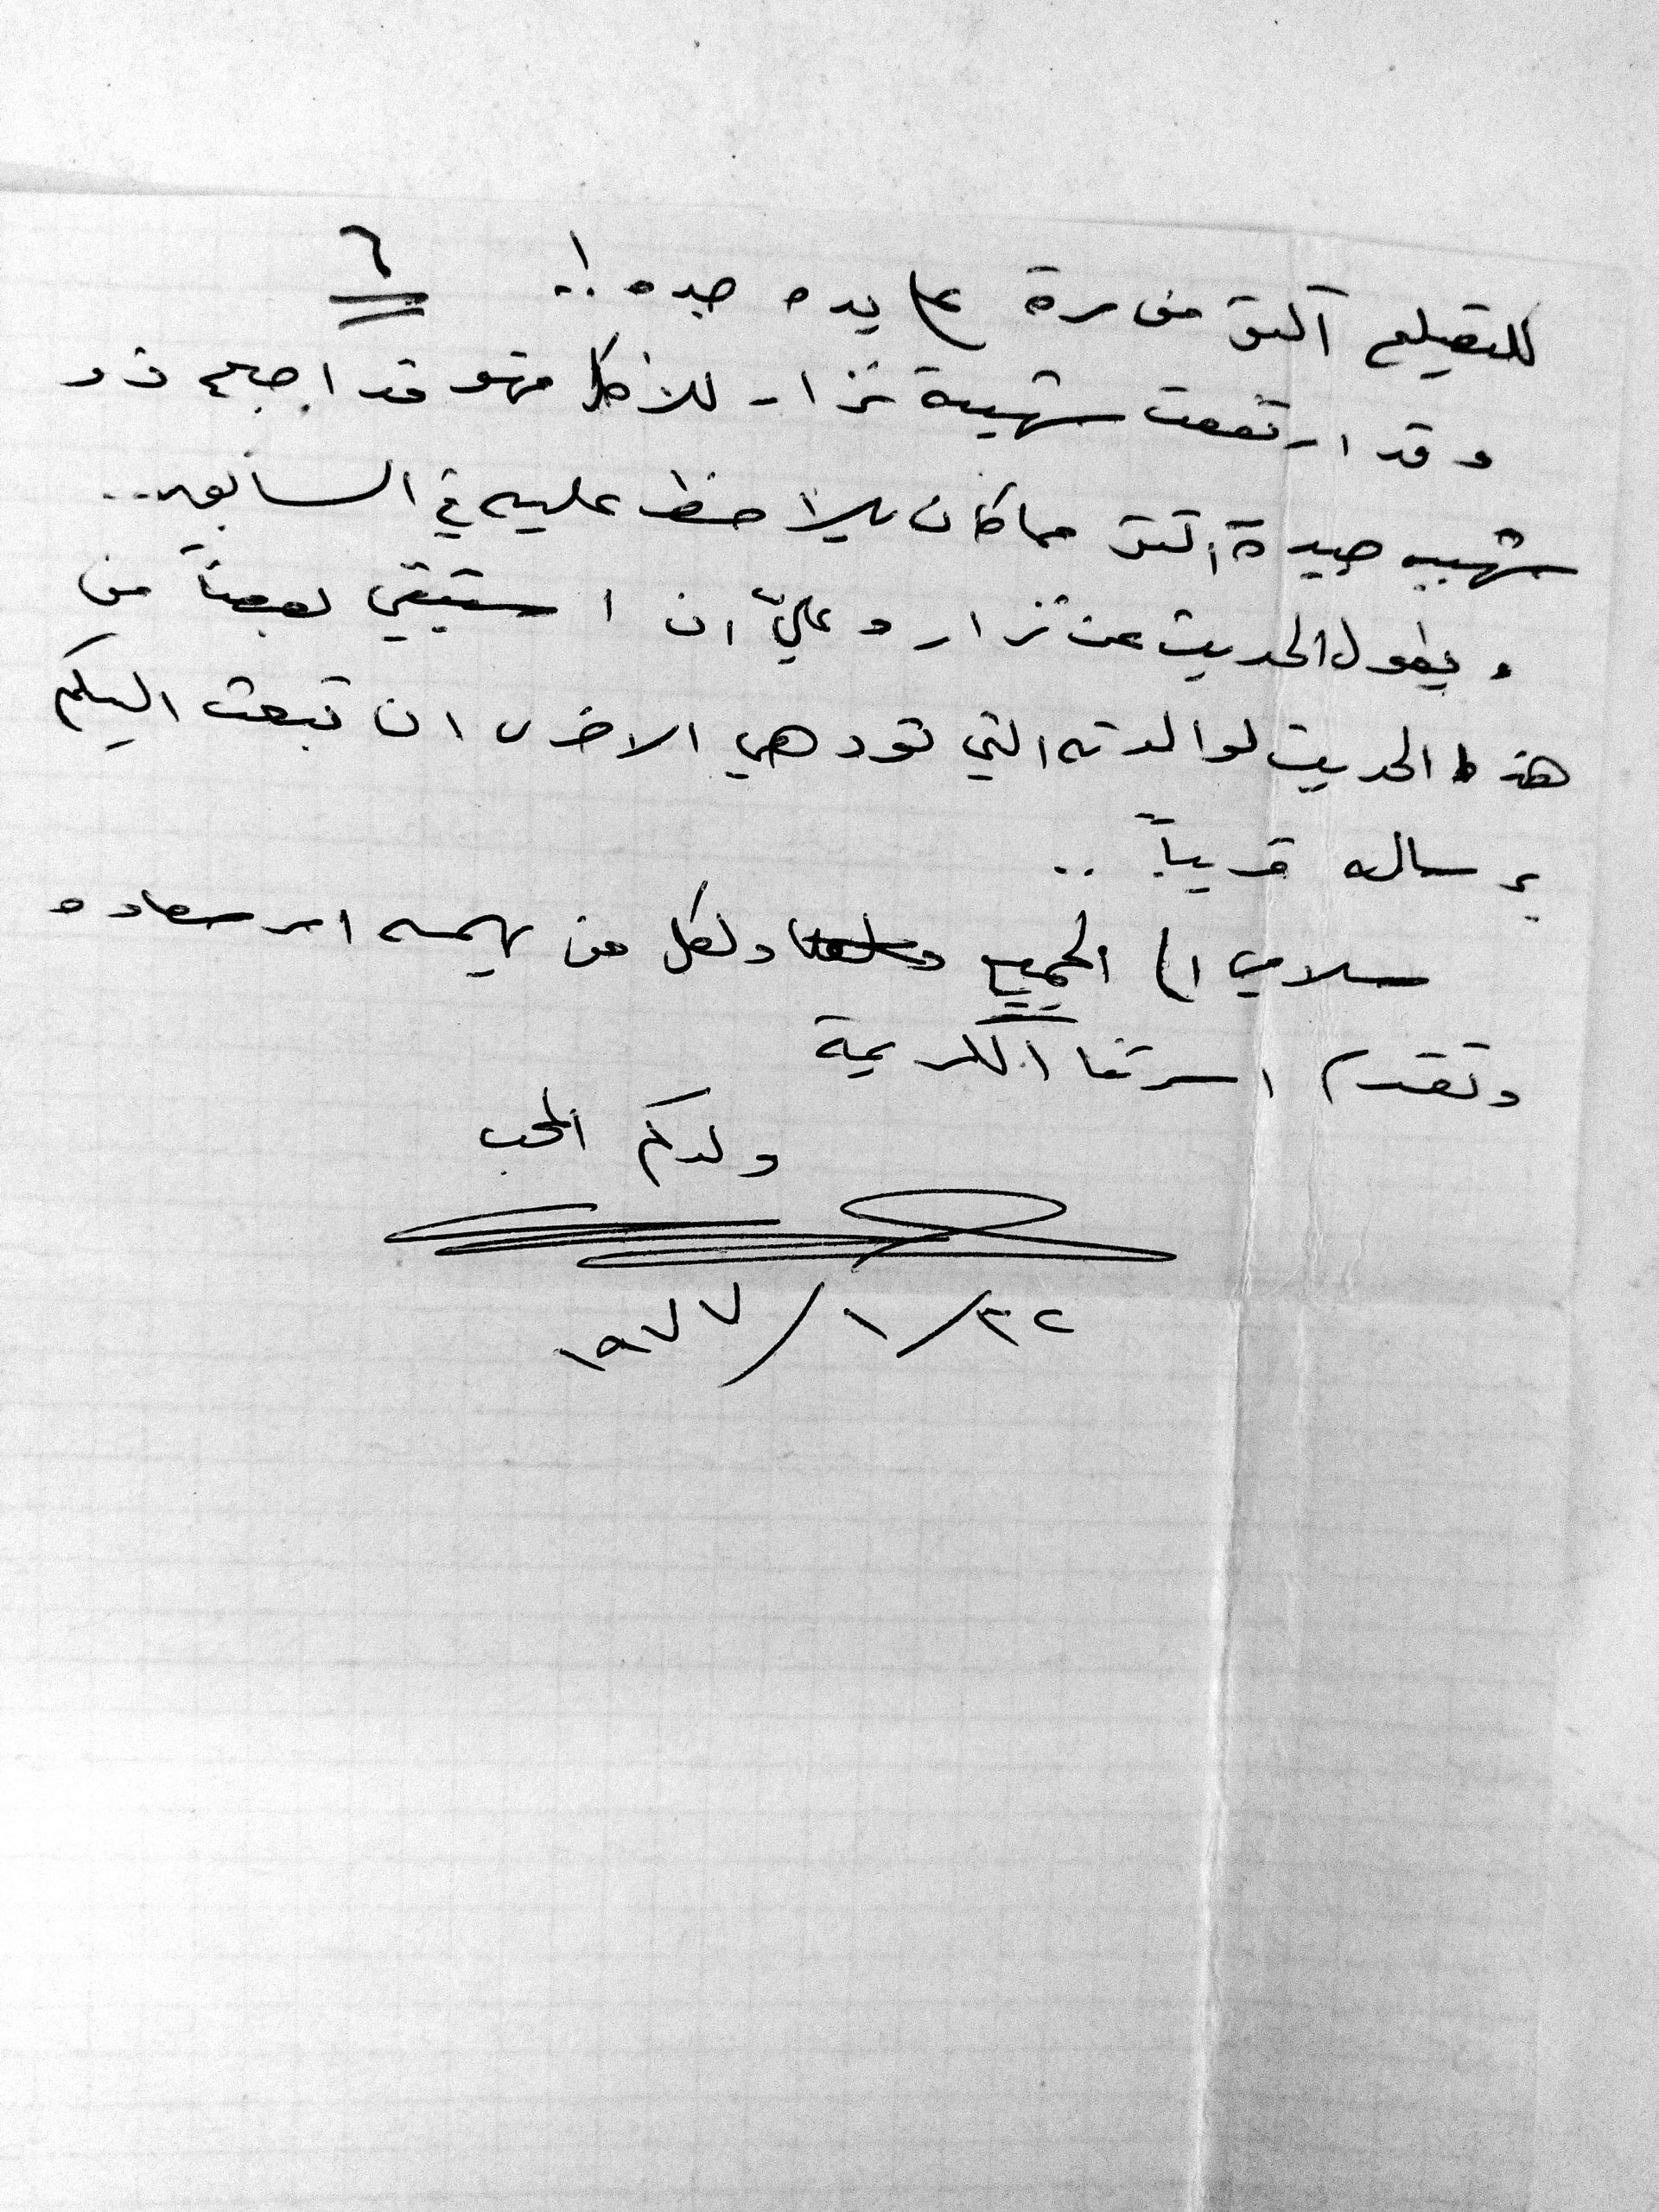 ٦
للتصليح اكثر من مرة على يده جده !..
وقد ارتفعت شهية نزار للأكل فهو قد اصبح ذو
شهيه جيدة اكثر مما كان يلاحظ عليه في السابق ..
ويطول الحديث عن نزار وعليّ ان استبقي بعضاً من
هذا الحديث لوالدته التي تود هي الاخرى ان تبعث اليكم
برساله قريباً ..
سلامي الى الجميع ولكل من يهمه امر سعادة
وتقدم اسرتنا الكريمة
ولدكم المحب
٢٢/١/١٩٧٧